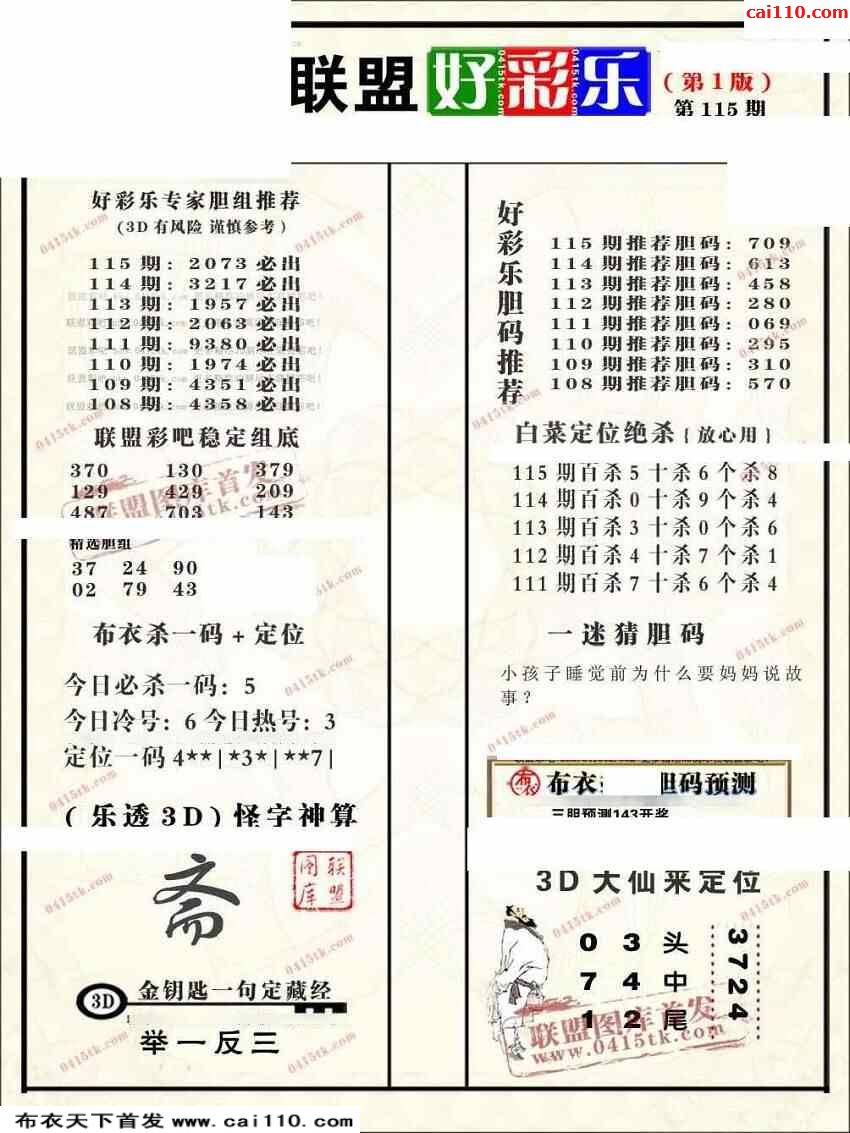 cai110.com
联盟好彩乐
（第1版）
第115期
好彩乐专家胆组推荐
（3D有风险 谨慎参考）
115期：2073必出
114期：3217必出
113期：1957必出
112期：2063必出
111期：9380必出
110期：1974必出
109期：4351必出
108期：4358必出
联盟彩吧稳定组底
370 130 379
129 429 209
487 703 143
联盟图库首发
精选胆组
37 24 90
02 79 43
布衣杀一码+定位
今日必杀一码：5
今日冷号：6 今日热号：3
定位一码 4**|*3*|**7|
（乐透3D）怪字神算
斋
联盟图库
3D 金钥匙一句定藏经
举一反三
好彩乐胆码推荐
115期推荐胆码：709
114期推荐胆码：613
113期推荐胆码：458
112期推荐胆码：280
111期推荐胆码：069
110期推荐胆码：295
109期推荐胆码：310
108期推荐胆码：570
白菜定位绝杀{放心用}
115期百杀5十杀6个杀8
114期百杀0十杀9个杀4
113期百杀3十杀0个杀6
112期百杀4十杀7个杀1
111期百杀7十杀6个杀4
一迷猜胆码
小孩子睡觉前为什么要妈妈说故
事？
布衣 胆码预测
三胆预测143开奖
3D大仙来定位
0 3 头
7 4 中
1 2 尾
3724
联盟图库首发
www.0415tk.com
0415tk.com
布衣天下首发 www.cai110.com